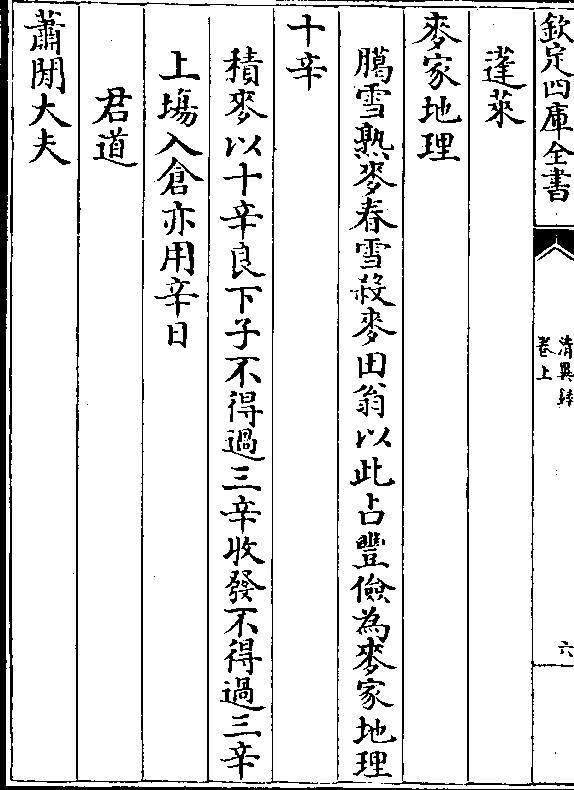 欽定四庫全書
清異録
卷上
六
蓬萊
麥家地理
臈雪熟麥春雪殺麥田翁以此占豐儉為麥家地理
十辛
積麥以十辛良下子不得過三辛收發不得過三辛
上塲入倉亦用辛日
君道
蕭閑大夫